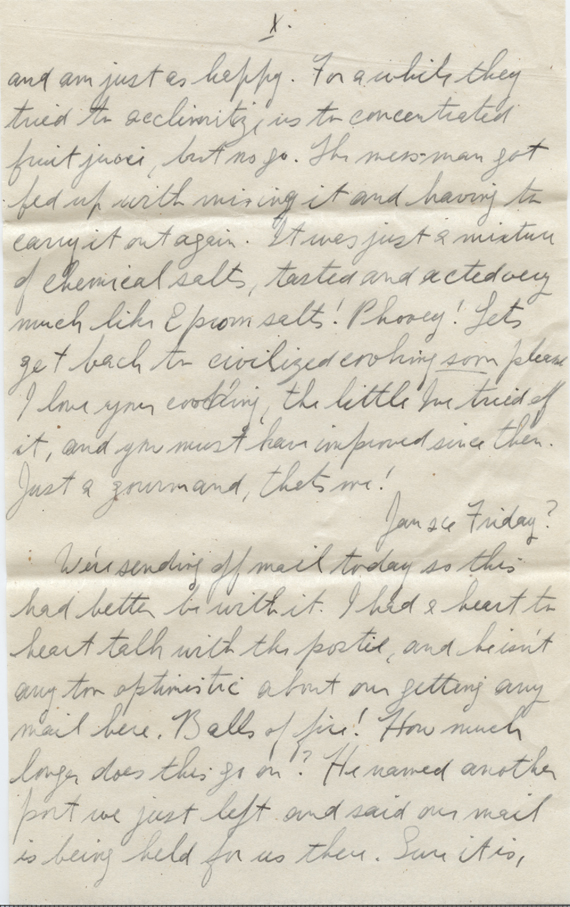 X.
and am just as happy. For a while they
tried to acclimitize us to concentrated
fruit juice, but no go. The messman got
fed up with mixing it and having to
carry it out again. It was just a mixture
of chemical salts, tasted and acted very
much like Epsom salts! Phooey! Lets
get back to civilized cooking soon please
I love your cooking, the little I've tried of
it, and you must have improved since then.
Just a gourmand, thets me!
Jan 26 Friday?
We're sending off mail today so this
had better be with it. I had a heart to
heart talk with the postie, and he isn't
any too optimistic about our getting any
mail here. Balls of fire! How much
longer does this go on? He named another
port we just left and said our mail
is being held for us there. Sure it is,